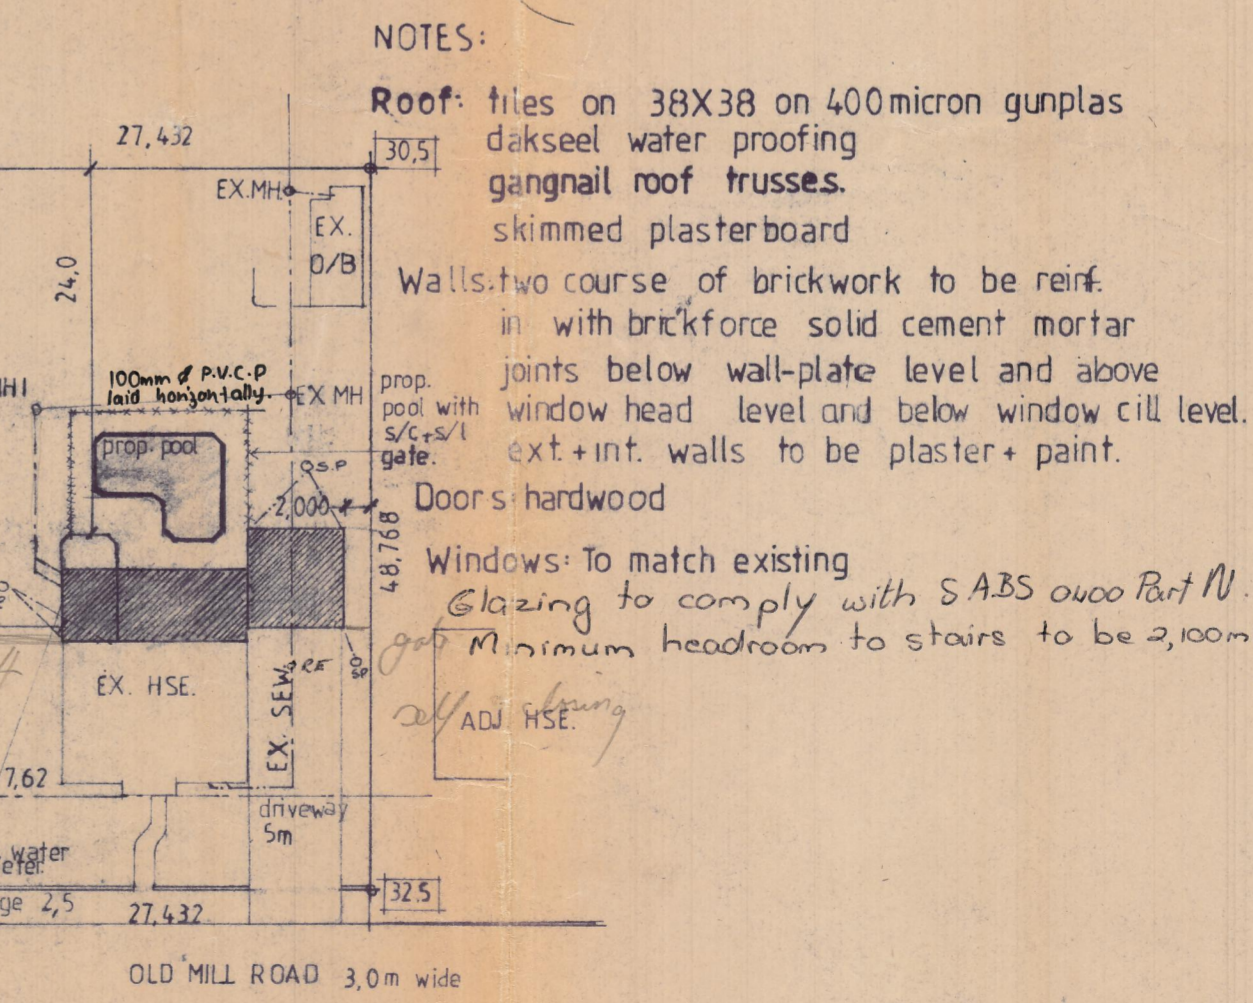 NOTES:
Roof: tiles on 38X38 on 400micron gunplas
dakseel water proofing
gangnail roof trusses.
skimmed plasterboard
Walls: two course of brickwork to be reinf.
in with brickforce solid cement mortar
joints below wall-plate level and above
window head level and below window cill level.
ext. + int. walls to be plaster + paint.
Doors: hardwood
Windows: To match existing
Glazing to comply with S.ABS 0400 Part N.
Minimum headroom to stairs to be 2,100m
27,432
30,5
EX.MH
EX.
O/B
24,0
100mm ø P.V.C.P
laid horizontally.
EX MH
MH1
prop.
pool with
s/c+s/l
gate.
prop. pool
O S.P
2,000
48,768
gate
self closing
EX. HSE.
EX. SEW.
RE
O SP
ADJ HSE.
7,62
driveway
5m
water
eter.
ge 2,5
27,432
32.5
OLD MILL ROAD 3,0m wide